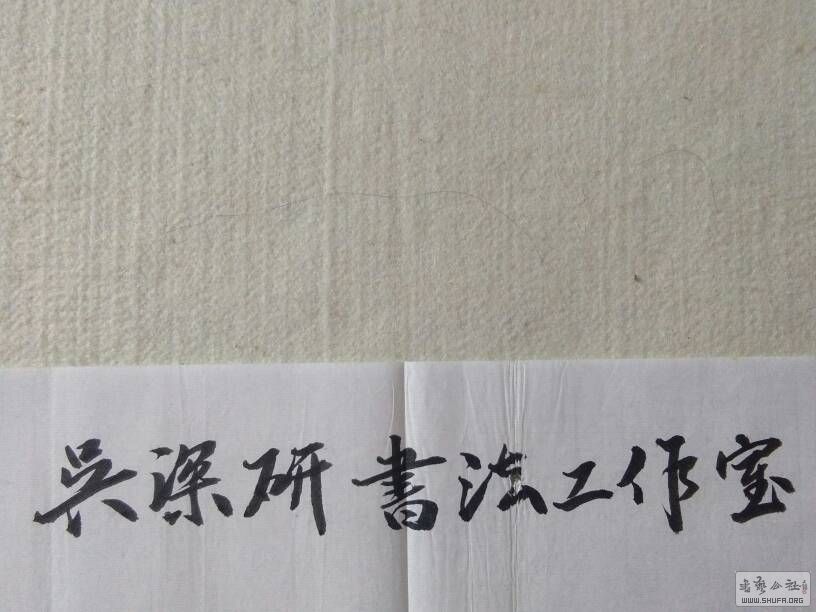 吳深研書法工作室
書藝公社
WWW.SHUFA.ORG